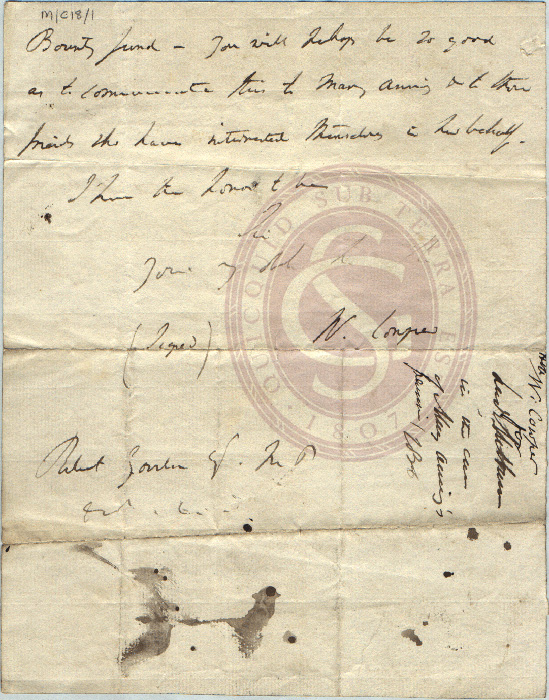 M/C18/1
Bounty fund – You will perhaps be so good
as to communicate this to Mary Anning & to those
friends who have interested themselves in her behalf.
I have the honor to be
Sir
Your
(Signed) W. Cowper
Robert Gordon Esq. M P
&c
W. Cowper
Lord Melbourne
in the case
of Mary Anning's
pension 1836
QUICQUID SUB TERRA EST
GS
· 1807 ·